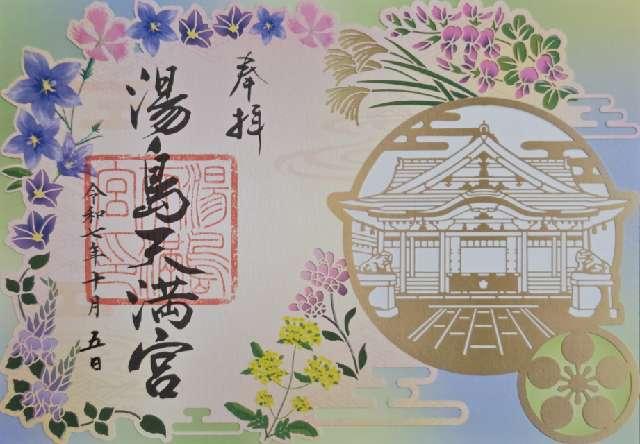 奉拝
湯島天満宮
令和七年十月五日